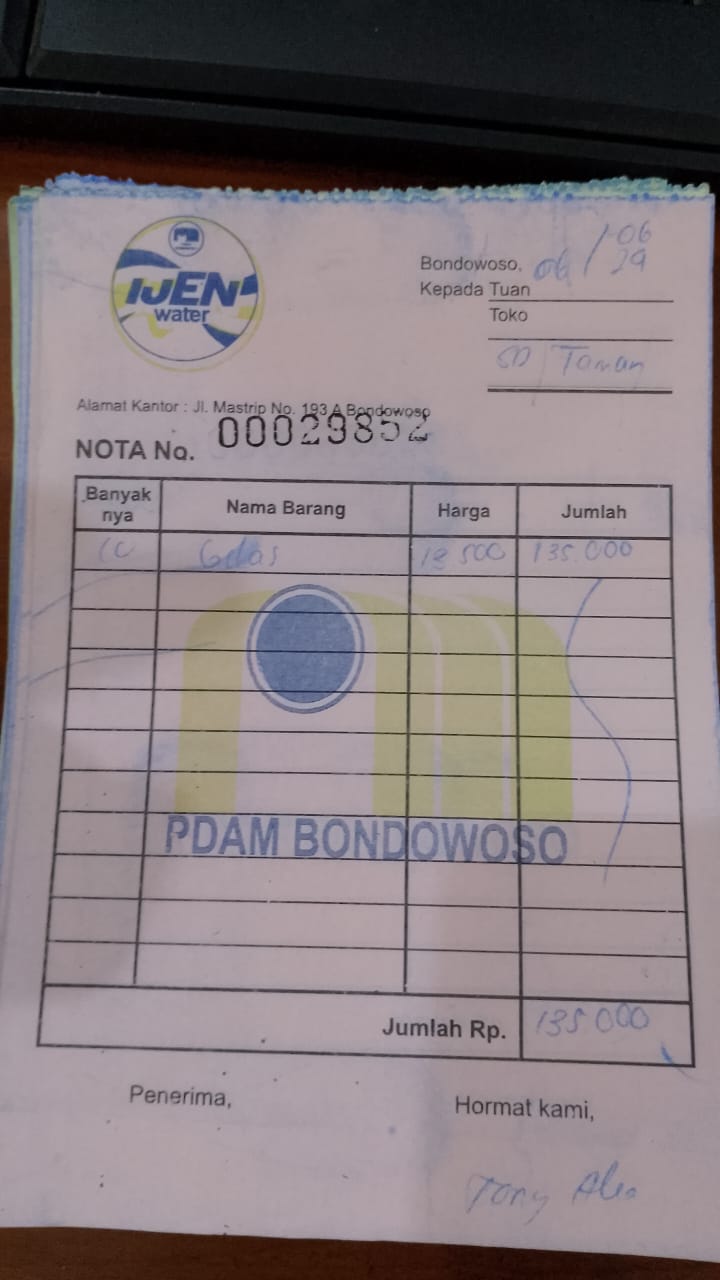 IJEN
water
Bondowoso, 06/-06
24
Kepada Tuan
Toko
SD Taman
Alamat Kantor : Jl. Mastrip No. 193 A Bondowoso
NOTA No. 00029852
Banyak nya Nama Barang Harga Jumlah
10 Gelas 13 500 135.000
PDAM BONDOWOSO
Jumlah Rp. 135 000
Penerima, Hormat kami,
Tony